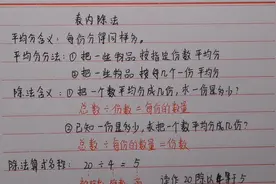 表内除法
平均分含义：每份分得同样多。
平均分方法：① 把一些物品按指定份数平均分
② 把一些物品按每几个一份平均分
除法含义：① 把一个数平均分成几份，求一份是多少？
总数÷份数=每份的数量
② 已知一份是多少，求把一个数平均分成几份？
总数÷每份的数量=份数
除法算式名称： 20 ÷ 4 = 5
读作 20除以4等于5